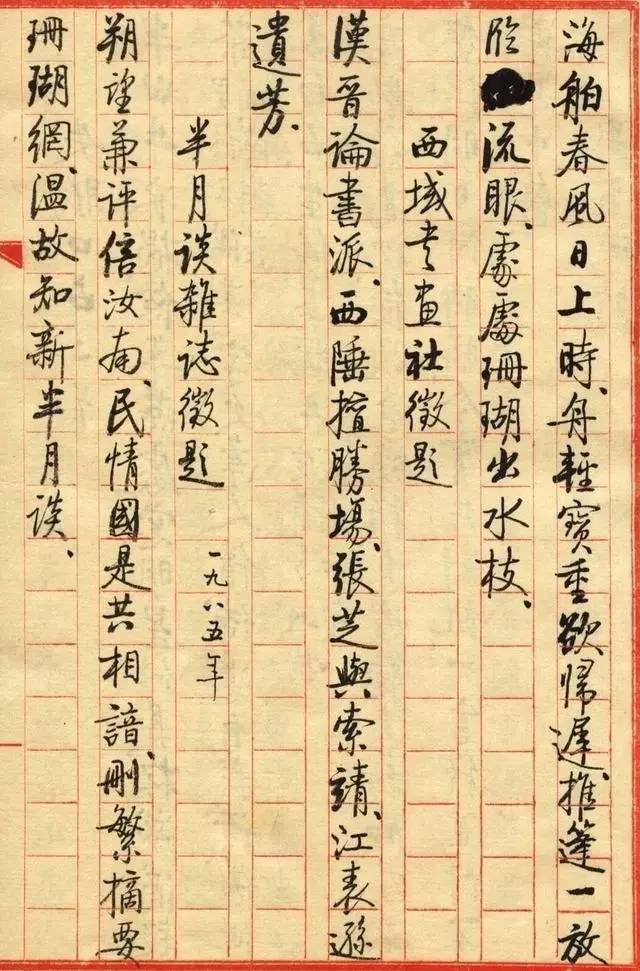 海舶春風日上時、舟輕寶重欲歸遲、推篷一放
流眼、處處珊瑚出水枝、
西域書畫社徵題
漢晉論書派、西陲擅勝場、張芝與索靖、江表遜
遺芳、
半月談雜誌徵題 一九八五年
朔望兼評倍汝南、民情國是共相諳、刪繁摘要
珊瑚網、溫故知新半月談、